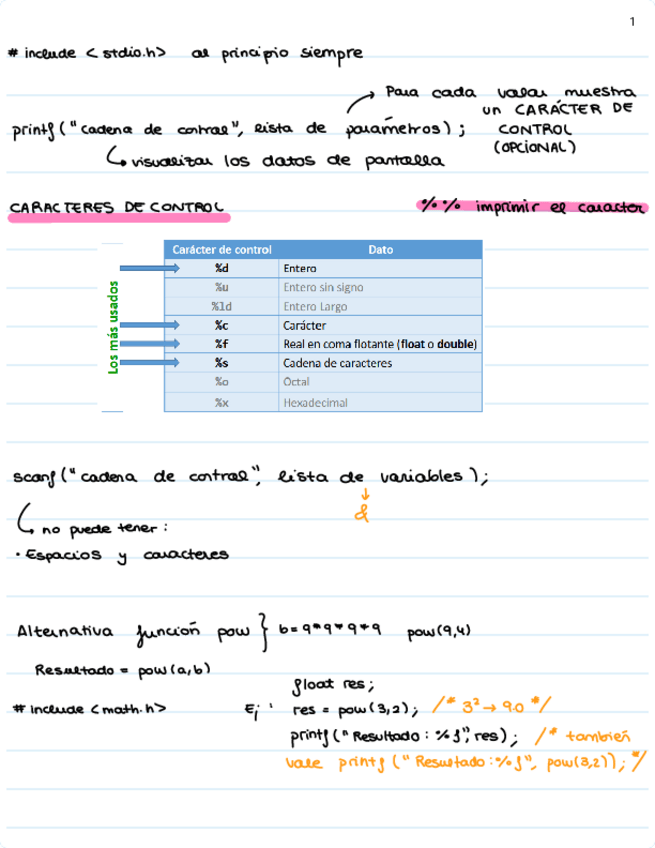 1
# include < stdio.h> al principio siempre
Para cada valor muestra
un CARÁCTER DE
CONTROL
(OPCIONAL)
printf ("cadena de control", lista de parámetros) ;
visualizar los datos de pantalla
CARACTERES DE CONTROL
%% imprimir el caracter
Los más usados
Carácter de control Dato
%d Entero
%u Entero sin signo
%ld Entero Largo
%c Carácter
%f Real en coma flotante (float o double)
%s Cadena de caracteres
%o Octal
%x Hexadecimal
scanf ("cadena de control", lista de variables ) ;
&
no puede tener :
· Espacios y caracteres
Alternativa función pow } b = 9*9*9*9 pow(9,4)
Resultado = pow(a,b)
# include <math.h>
Ej : float res ;
res = pow(3,2) ; /* 3² → 9.0 */
printf ("Resultado : %f", res) ; /* también
vale printf ("Resultado : %f", pow(3,2)) ; */